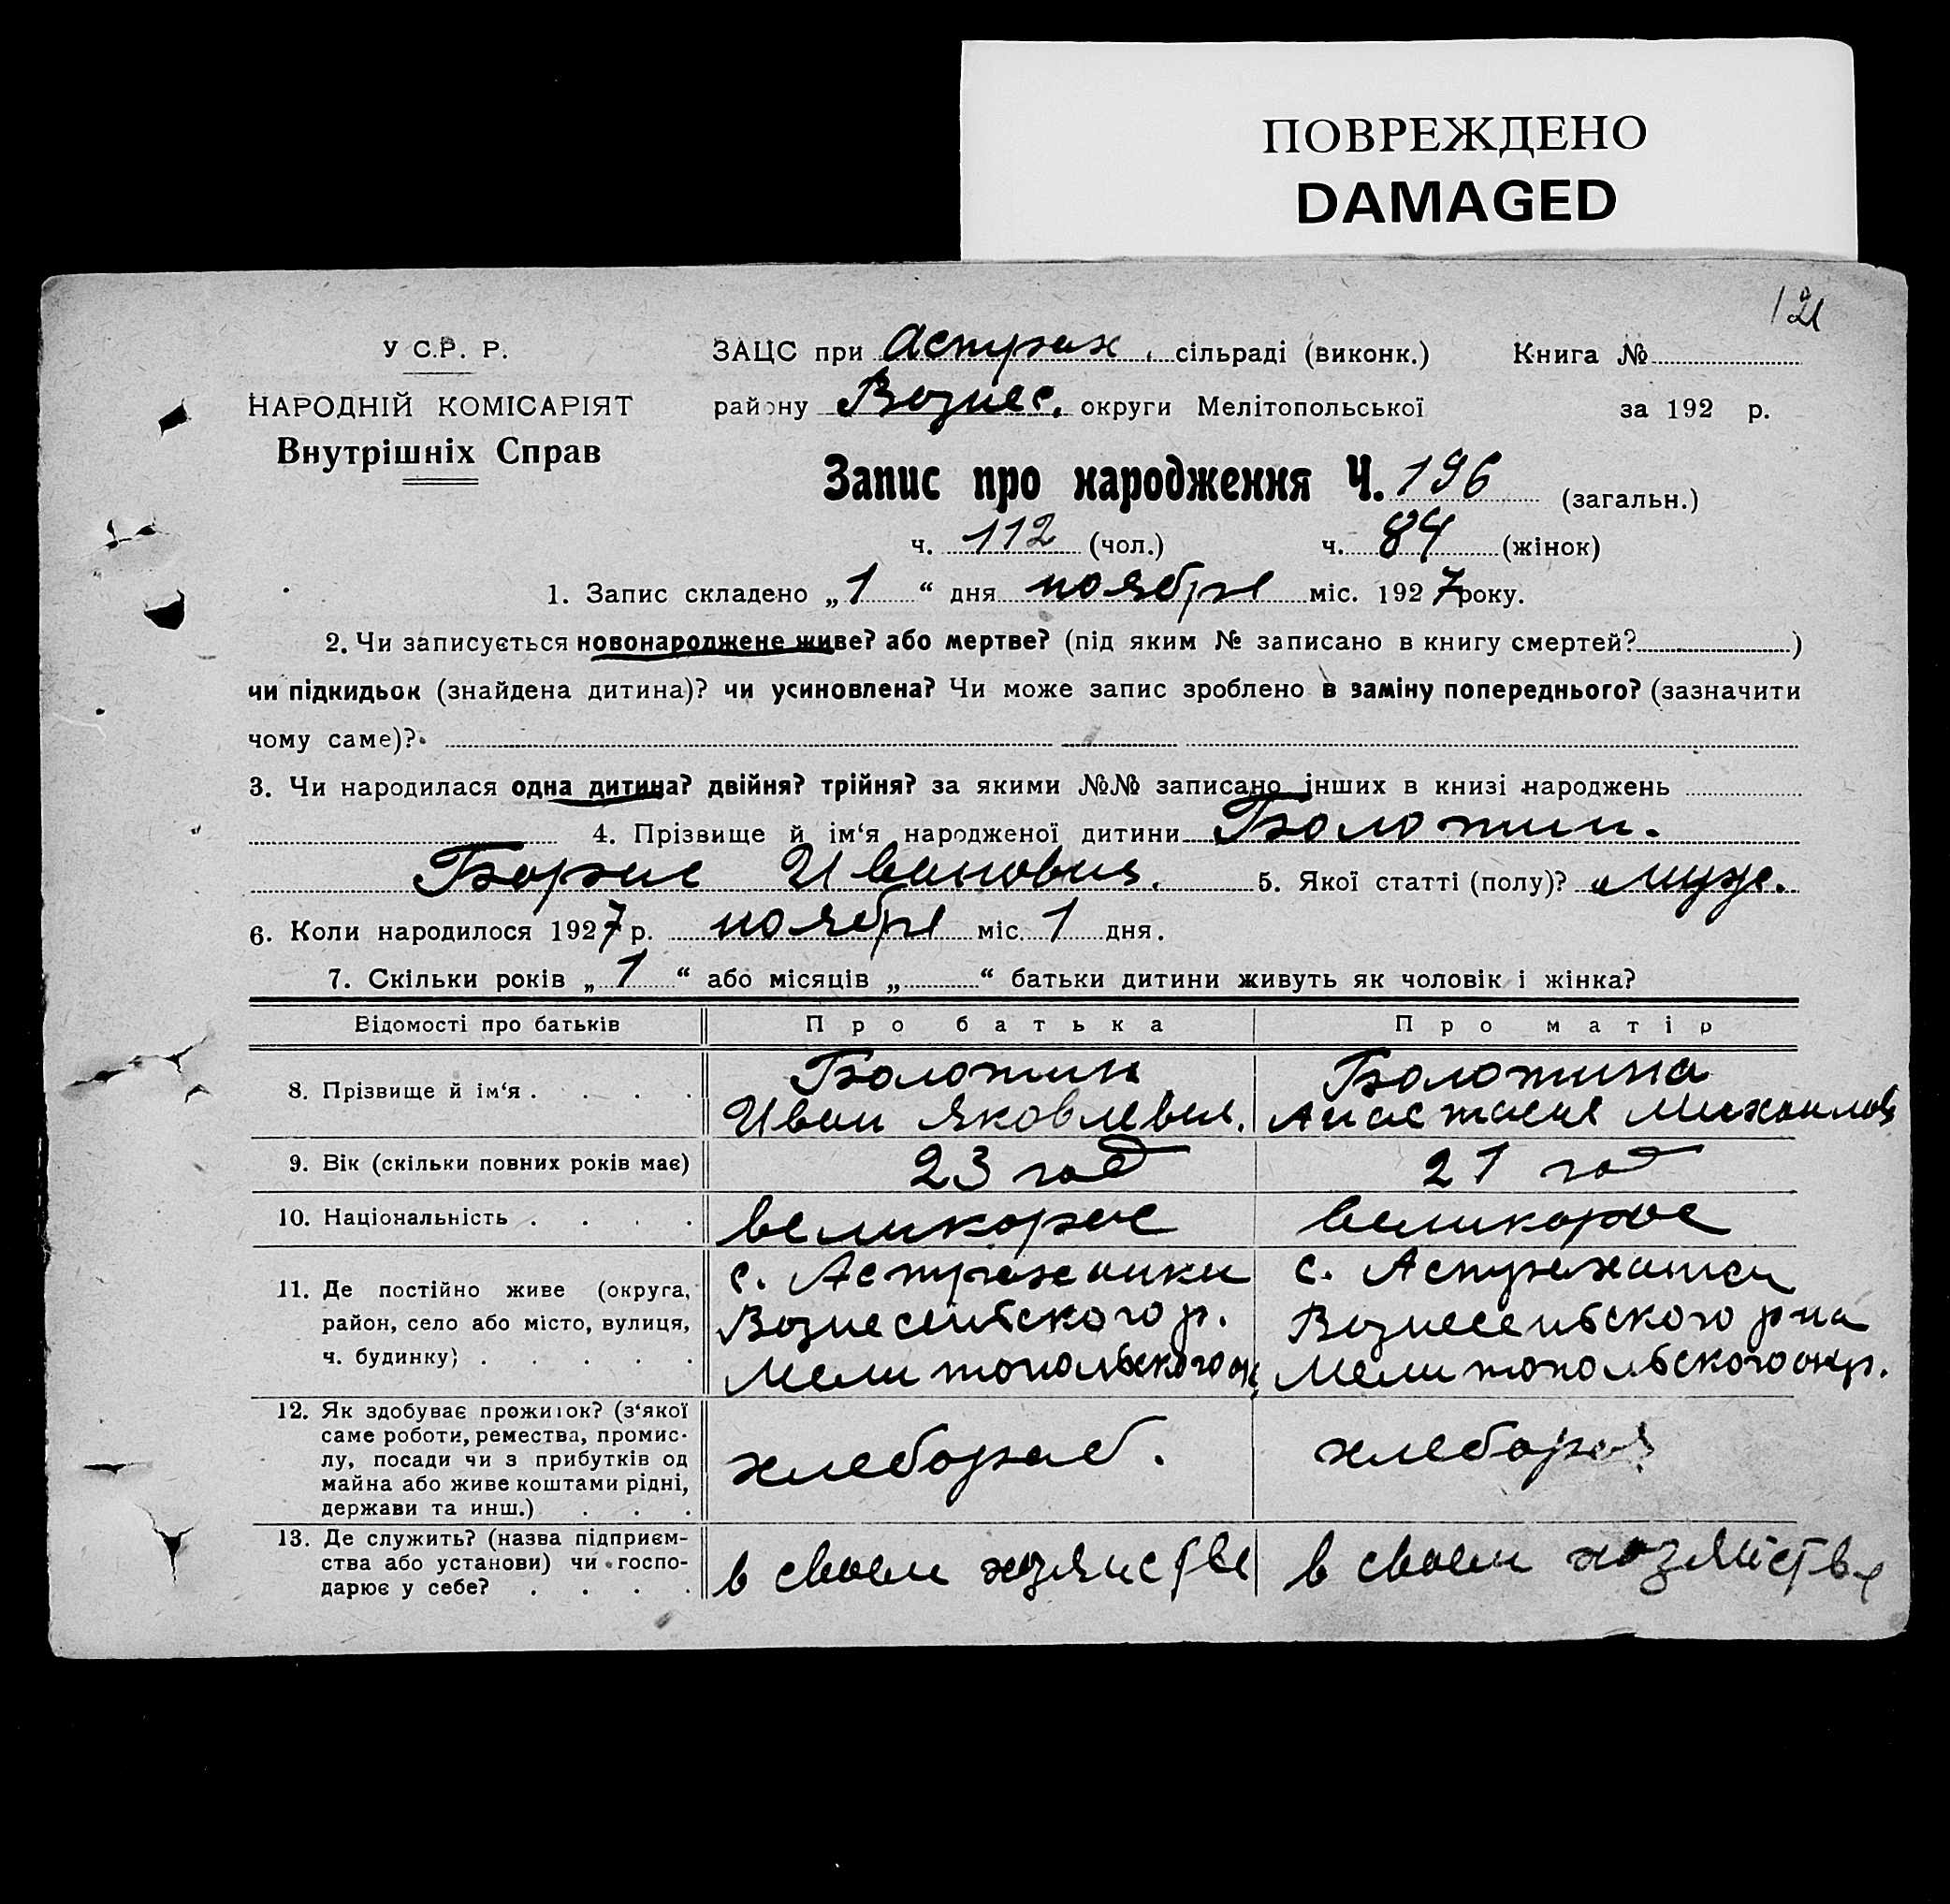 ПОВРЕЖДЕНО
DAMAGED
121
У С.Р. Р.
НАРОДНІЙ КОМІСАРІЯТ
Внутрішніх Справ
ЗАЦС при Астрах. сільраді (виконк.) Книга №
району Вознес. округи Мелітопольської за 192 р.
Запис про народження Ч. 196 (загальн.)
ч. 112 (чол.) ч. 84 (жінок)
1. Запис складено „1“ дня ноября міс. 1927 року.
2. Чи записується новонароджене живе? або мертве? (під яким № записано в книгу смертей? )
чи підкидьок (знайдена дитина)? чи усиновлена? Чи може запис зроблено в заміну попереднього? (зазначити
чому саме)?
3. Чи народилася одна дитина? двійня? трійня? за якими №№ записано інших в книзі народжень
4. Прізвище й ім‘я народженої дитини Болотин.
Борис Иванович. 5. Якої статті (полу)? муж.
6. Коли народилося 1927 р. ноября міс. 1 дня.
7. Скільки років „1“ або місяців „ “ батьки дитини живуть як чоловік і жінка?
Відомості про батьків Про батька Про матір
8. Прізвище й ім‘я . . . . Болотин Болотина
Иван Яковлевич. Анастасия Михайлов
9. Вік (скільки повних років має) 23 год 21 год
10. Національність . . . . великорос великорос
11. Де постійно живе (округа, с. Астраханки с. Астраханки
район, село або місто, вулиця, Вознесенського р. Вознесенського р на
ч. будинку) . . . . . Мелитопольского ок Мелитопольского окр.
12. Як здобуває прожиток? (з‘якої
саме роботи, ремества, промис-
лу, посади чи з прибутків од хлебороб. хлебороб
майна або живе коштами рідні,
держави та инш.) . . .
13. Де служить? (назва підприєм-
ства або установи) чи госпо- в своем хозяистве в своем хозяйстве
дарює у себе? . . . .